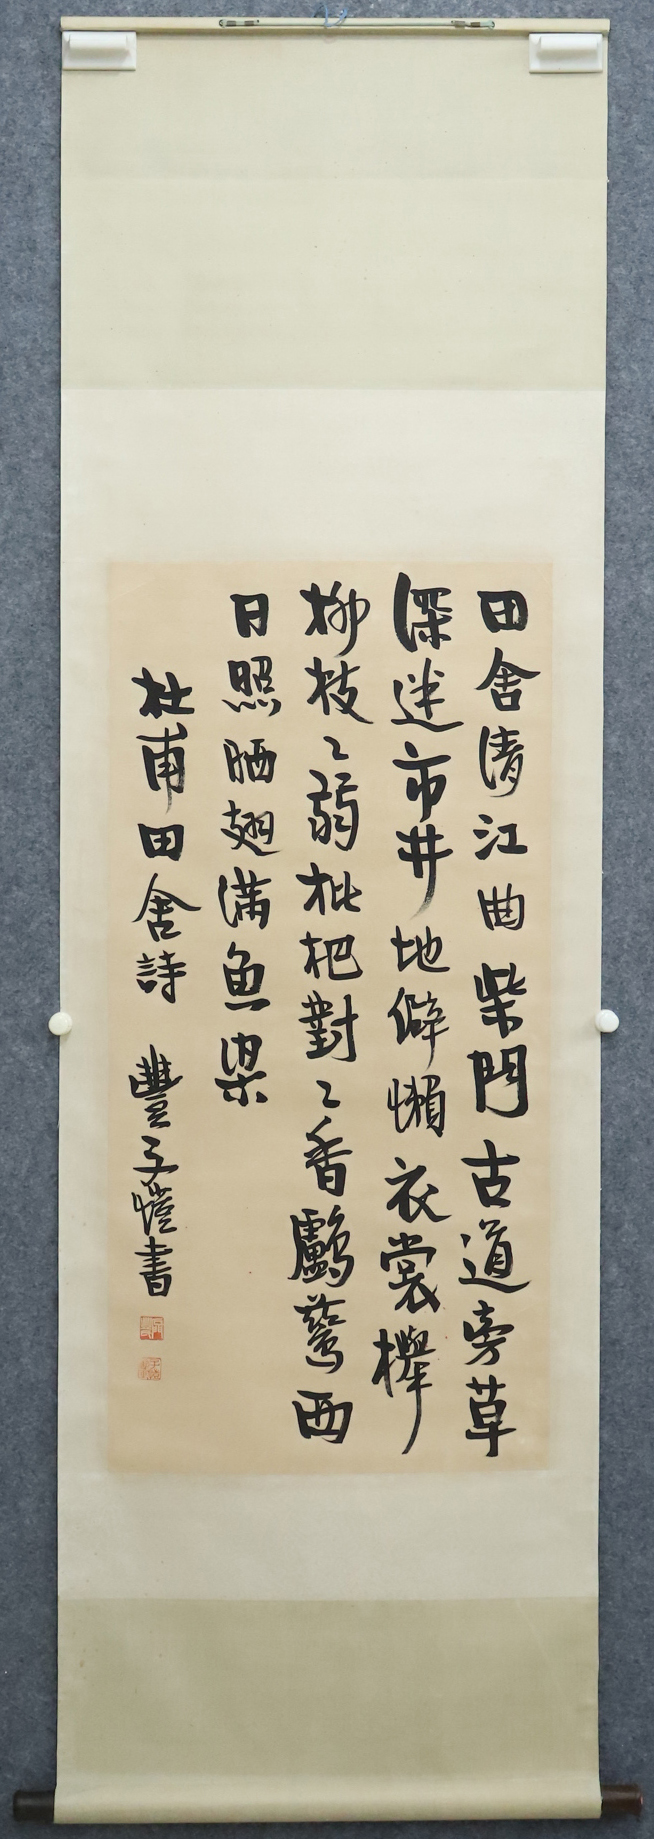 田舍清江曲柴門古道旁草
深迷市井地僻懶衣裳櫸
柳枝〻弱枇杷對〻香鸕鶿西
日照晒翅满魚梁
杜甫田舍詩 豐子愷書